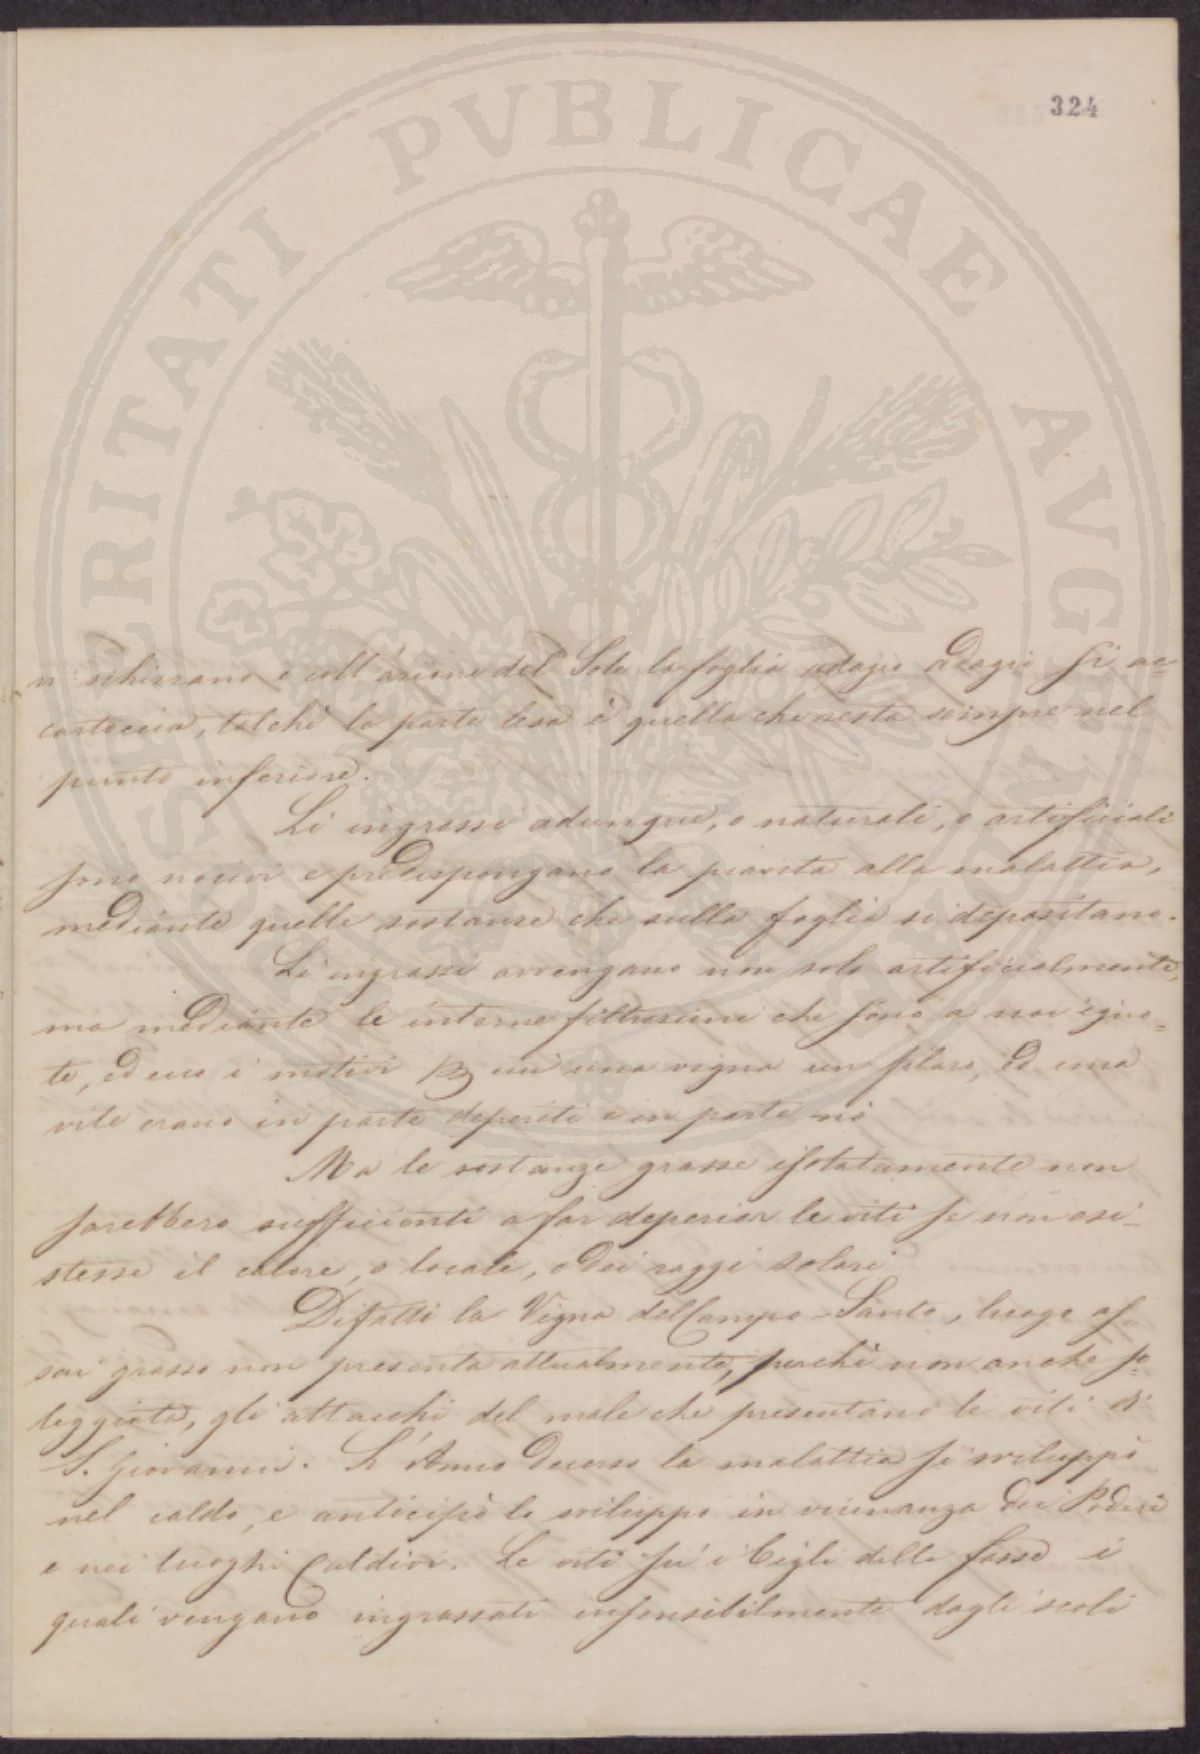 324
PROSPERITATI PVBLICAE AVGENDAE
si schizzano e coll'azione del Sole la foglia adagio adagio si ac=
cartoccia, talchè la parte lesa è quella che resta sempre nel
punto inferiore.
Li ingrassi adunque, o naturali, o artificiali
sono nocivi e predispongano la pianta alla malattia,
mediante quelle sostanze che sulla foglia si depositano.
Li ingrassi avvengano non solo artificialmente,
ma mediante le interne filtrazioni che sono a noi igno=
te, ed ecco i motivi per cui una vigna un filare, ed una
vite erano in parte deperiti e in parte nò
Ma le sostanze grasse isolatamente non
sarebbero sufficienti a far deperier le viti se non esi=
stesse il calore, o locale, o dei raggi solari
Difatti la Vigna del Campo-Santo, luogo as=
sai grasso non presenta attualmente, perchè non anche so=
leggiato, gli attacchi del male che presentano le viti di
S. Giovanni. L'Anno decorso la malattia si sviluppò
nel caldo, e anticipò lo sviluppo in vicinanza dei Poderi
e nei luoghi Caldivi. Le viti su' i Cigli delle fosse i
quali vengano ingrassati insensibilmente dagli scoli